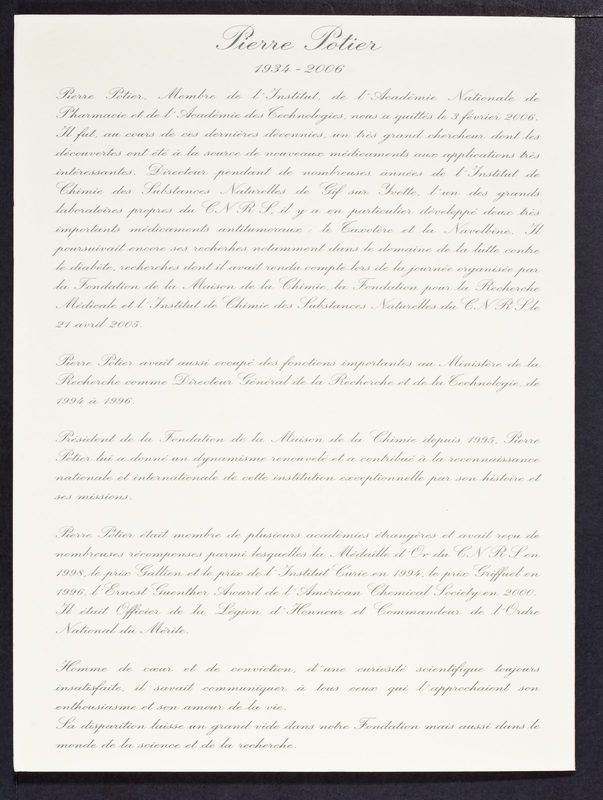 Pierre Potier
1934 - 2006
Pierre Potier, Membre de l'Institut, de l'Académie Nationale de
Pharmacie et de l'Académie des Technologies, nous a quittés le 3 février 2006.
Il fut, au cours de ces dernières décennies, un très grand chercheur dont les
découvertes ont été à la source de nouveaux médicaments aux applications très
intéressantes. Directeur pendant de nombreuses années de l'Institut de
Chimie des Substances Naturelles de Gif sur Yvette, l'un des grands
laboratoires propres du C.N.R.S, il y a en particulier développé deux très
importants médicaments antitumoraux : le Taxotère et la Navelbine. Il
poursuivait encore ses recherhes notamment dans le domaine de la lutte contre
le diabète, recherches dont il avait rendu compte lors de la journée organisée par
la Fondation de la Maison de la Chimie, la Fondation pour la Recherche
Médicale et l'Institut de Chimie des Substances Naturelles du C.N.R.S le
21 avril 2005.
Pierre Potier avait aussi occupé des fonctions importantes au Ministère de la
Recherche comme Directeur Général de la Recherche et de la Technologie, de
1994 à 1996.
Président de la Fondation de la Maison de la Chimie depuis 1995, Pierre
Potier lui a donné un dynamisme renouvelé et a contribué à la reconnaissance
nationale et internationale de cette institution exceptionnelle par son histoire et
ses missions.
Pierre Potier était membre de plusieurs académies étrangères et avait reçu de
nombreuses récompenses parmi lesquelles la Médaille d'Or du C.N.R.S en
1998, le prix Gallien et le prix de l'Institut Curie en 1994, le prix Griffuel en
1996, l'Ernest Guenther Award de l'American Chemical Society en 2000.
Il était Officier de la Légion d'Honneur et Commandeur de l'Ordre
National du Mérite.
Homme de cœur et de conviction, d'une curiosité scientifique toujours
insatisfaite, il savait communiquer à tous ceux qui l'approchaient son
enthousiasme et son amour de la vie.
Sa disparition laisse un grand vide dans notre Fondation mais aussi dans le
monde de la science et de la recherche.